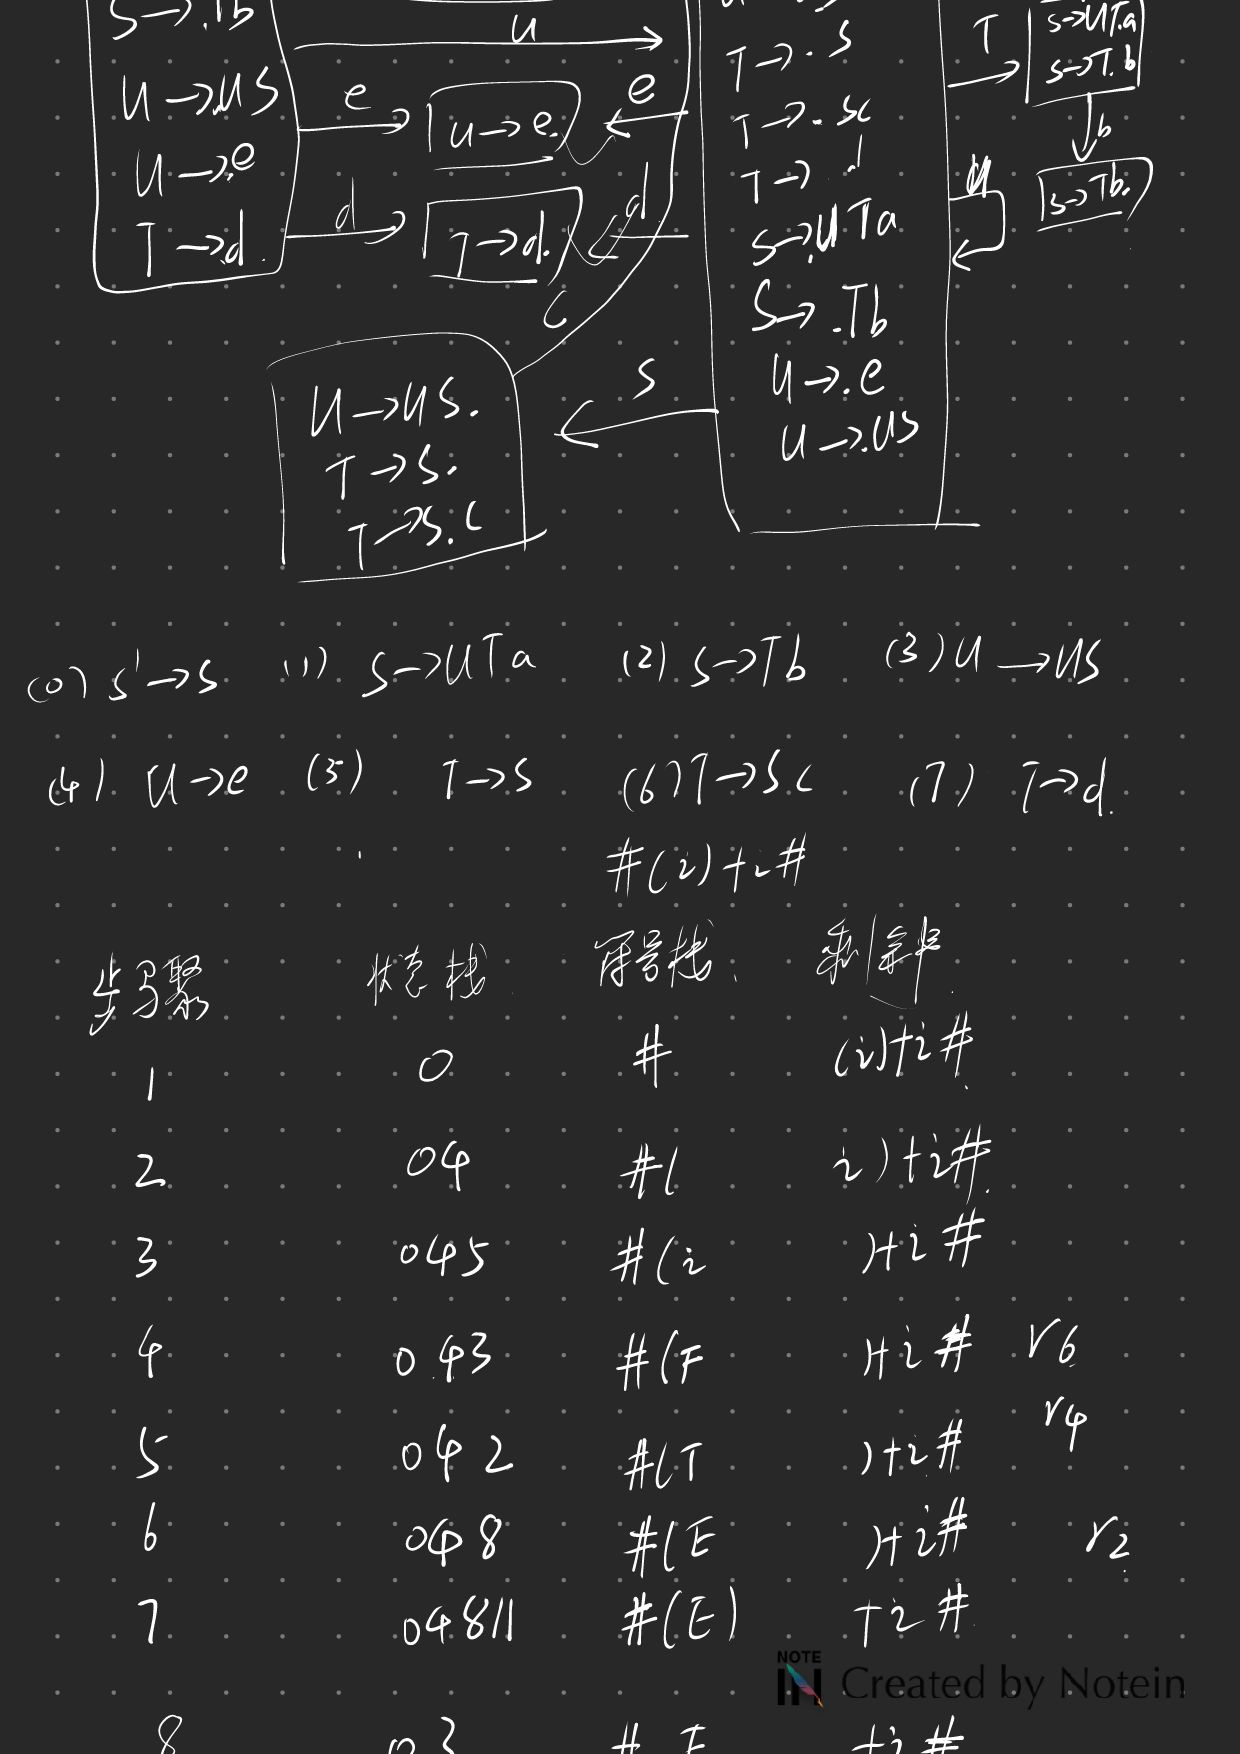 S→.Tb
U→.US
U→.e
T→.d
u
e
U→e.
d
T→d.
e
d
c
T→.S
T→.Sc
T→.d
S→.UTa
S→.Tb
U→.e
U→.US
T
S→UT.a
S→T.b
b
S→Tb.
U
S
U→US.
T→S.
T→S.c
(0) S'→S (1) S→UTa (2) S→Tb (3) U→US
(4) U→e (5) T→S (6) T→Sc (7) T→d
#(i)+i#
步骤 状态栈 符号栈 剩余串
1 0 # (i)+i#
2 04 #( i)+i#
3 045 #(i )+i#
4 043 #(F )+i# r6
5 042 #(T )+i# r4
6 048 #(E )+i# r2
7 04811 #(E) +i#
8 03 #F +i#
NOTE
IN Created by Notein